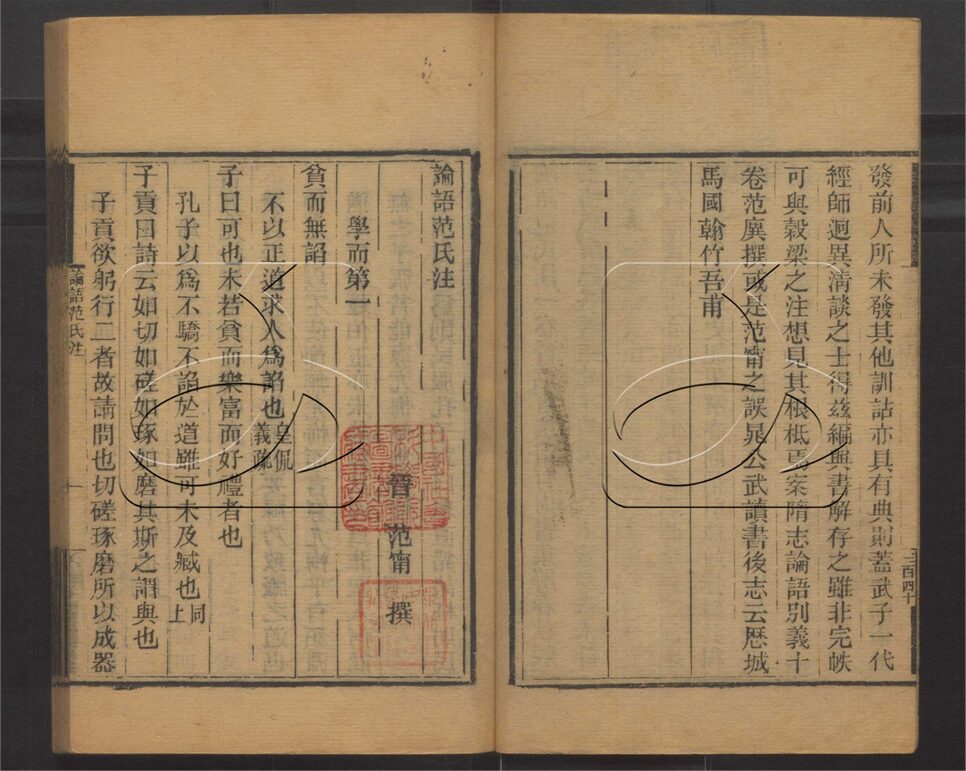 發前人所未發其他訓詁亦具有典則蓋武子一代
經師迥異淸談之士得茲編與書解存之雖非完帙
可與穀梁之注想見其根柢焉案隋志論語別義十
卷范廙撰或是范甯之誤晁公武讀書後志云歷城
馬國翰竹吾甫
論語范氏注
晉范甯撰
學而第一
貧而無諂
不以正道求人爲諂也皇侃義疏
子曰可也未若貧而樂富而好禮者也
孔子以爲不驕不諂於道雖可未及臧也同上
子貢曰詩云如切如磋如琢如磨其斯之謂與也
子貢欲躬行二者故請問也切磋琢磨所以成器
論語范氏注